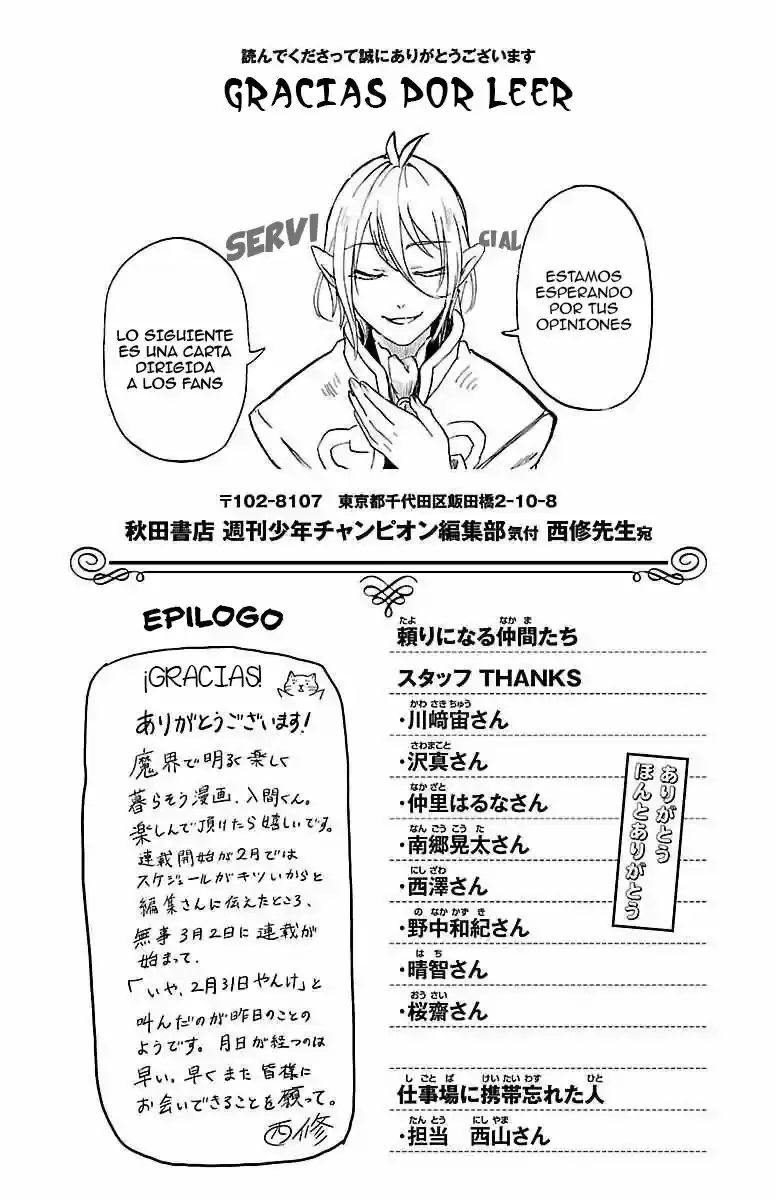 読んでくださって誠にありがとうございます
GRACIAS POR LEER
SERVI
CIAL
ESTAMOS
ESPERANDO
POR TUS
OPINIONES
LO SIGUIENTE
ES UNA CARTA
DIRIGIDA
A LOS FANS
〒102-8107 東京都千代田区飯田橋2-10-8
秋田書店 週刊少年チャンピオン編集部気付 西修先生宛
EPILOGO
¡GRACIAS!
ありがとうございます!
魔界で明るく楽しく
暮らそう漫画、入間くん。
楽しんで頂けたら嬉しいです。
連載開始が2月では
スケジュールがキツいからと
編集さんに伝えたところ、
無事3月2日に連載が
始まって、
「いや、2月31日やんけ」と
叫んだのが昨日のことの
ようです。月日が経つのは
早い。早くまた皆様に
お会いできることを願って。
西修
たよ なかま
頼りになる仲間たち
スタッフ THANKS
かわさきちゅう
・川﨑宙さん
さわまこと
・沢真さん
なかざと
・仲里はるなさん
なんごうこうた
・南郷晃太さん
にしざわ
・西澤さん
のなかかずき
・野中和紀さん
はち
・晴智さん
おうさい
・桜齋さん
ありがとう
ほんとありがとう
しごとば けいたいわす ひと
仕事場に携帯忘れた人
たんとう にしやま
・担当 西山さん